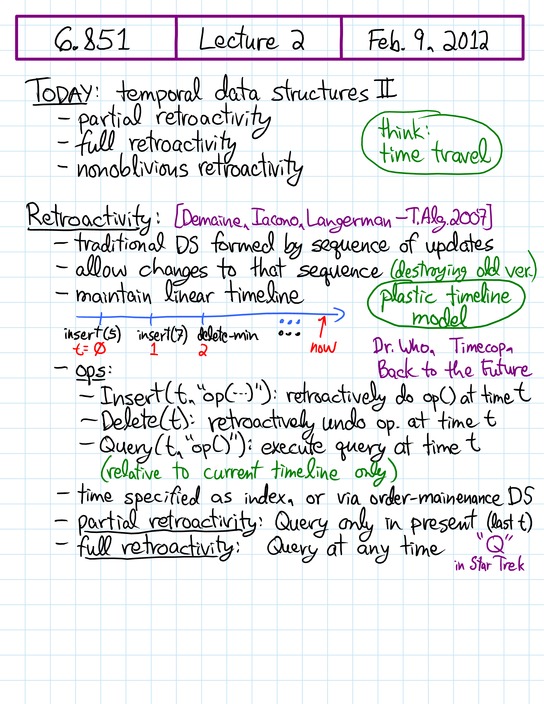 6.851 Lecture 2 Feb. 9, 2012
TODAY: temporal data structures II
- partial retroactivity
- full retroactivity
- nonoblivious retroactivity
think:
time travel
Retroactivity: [Demaine, Iacono, Langerman – T.Alg. 2007]
- traditional DS formed by sequence of updates
- allow changes to that sequence (destroying old ver.)
- maintain linear timeline
plastic timeline
model
insert(5) insert(7) delete-min ...
t=0 1 2 now
Dr. Who, Timecop,
Back to the Future
- ops:
- Insert(t, "op(...)"): retroactively do op() at time t
- Delete(t): retroactively undo op. at time t
- Query(t, "op()"): execute query at time t
(relative to current timeline only)
- time specified as index, or via order-mainenance DS
- partial retroactivity: Query only in present (last t)
- full retroactivity: Query at any time "Q"
in Star Trek